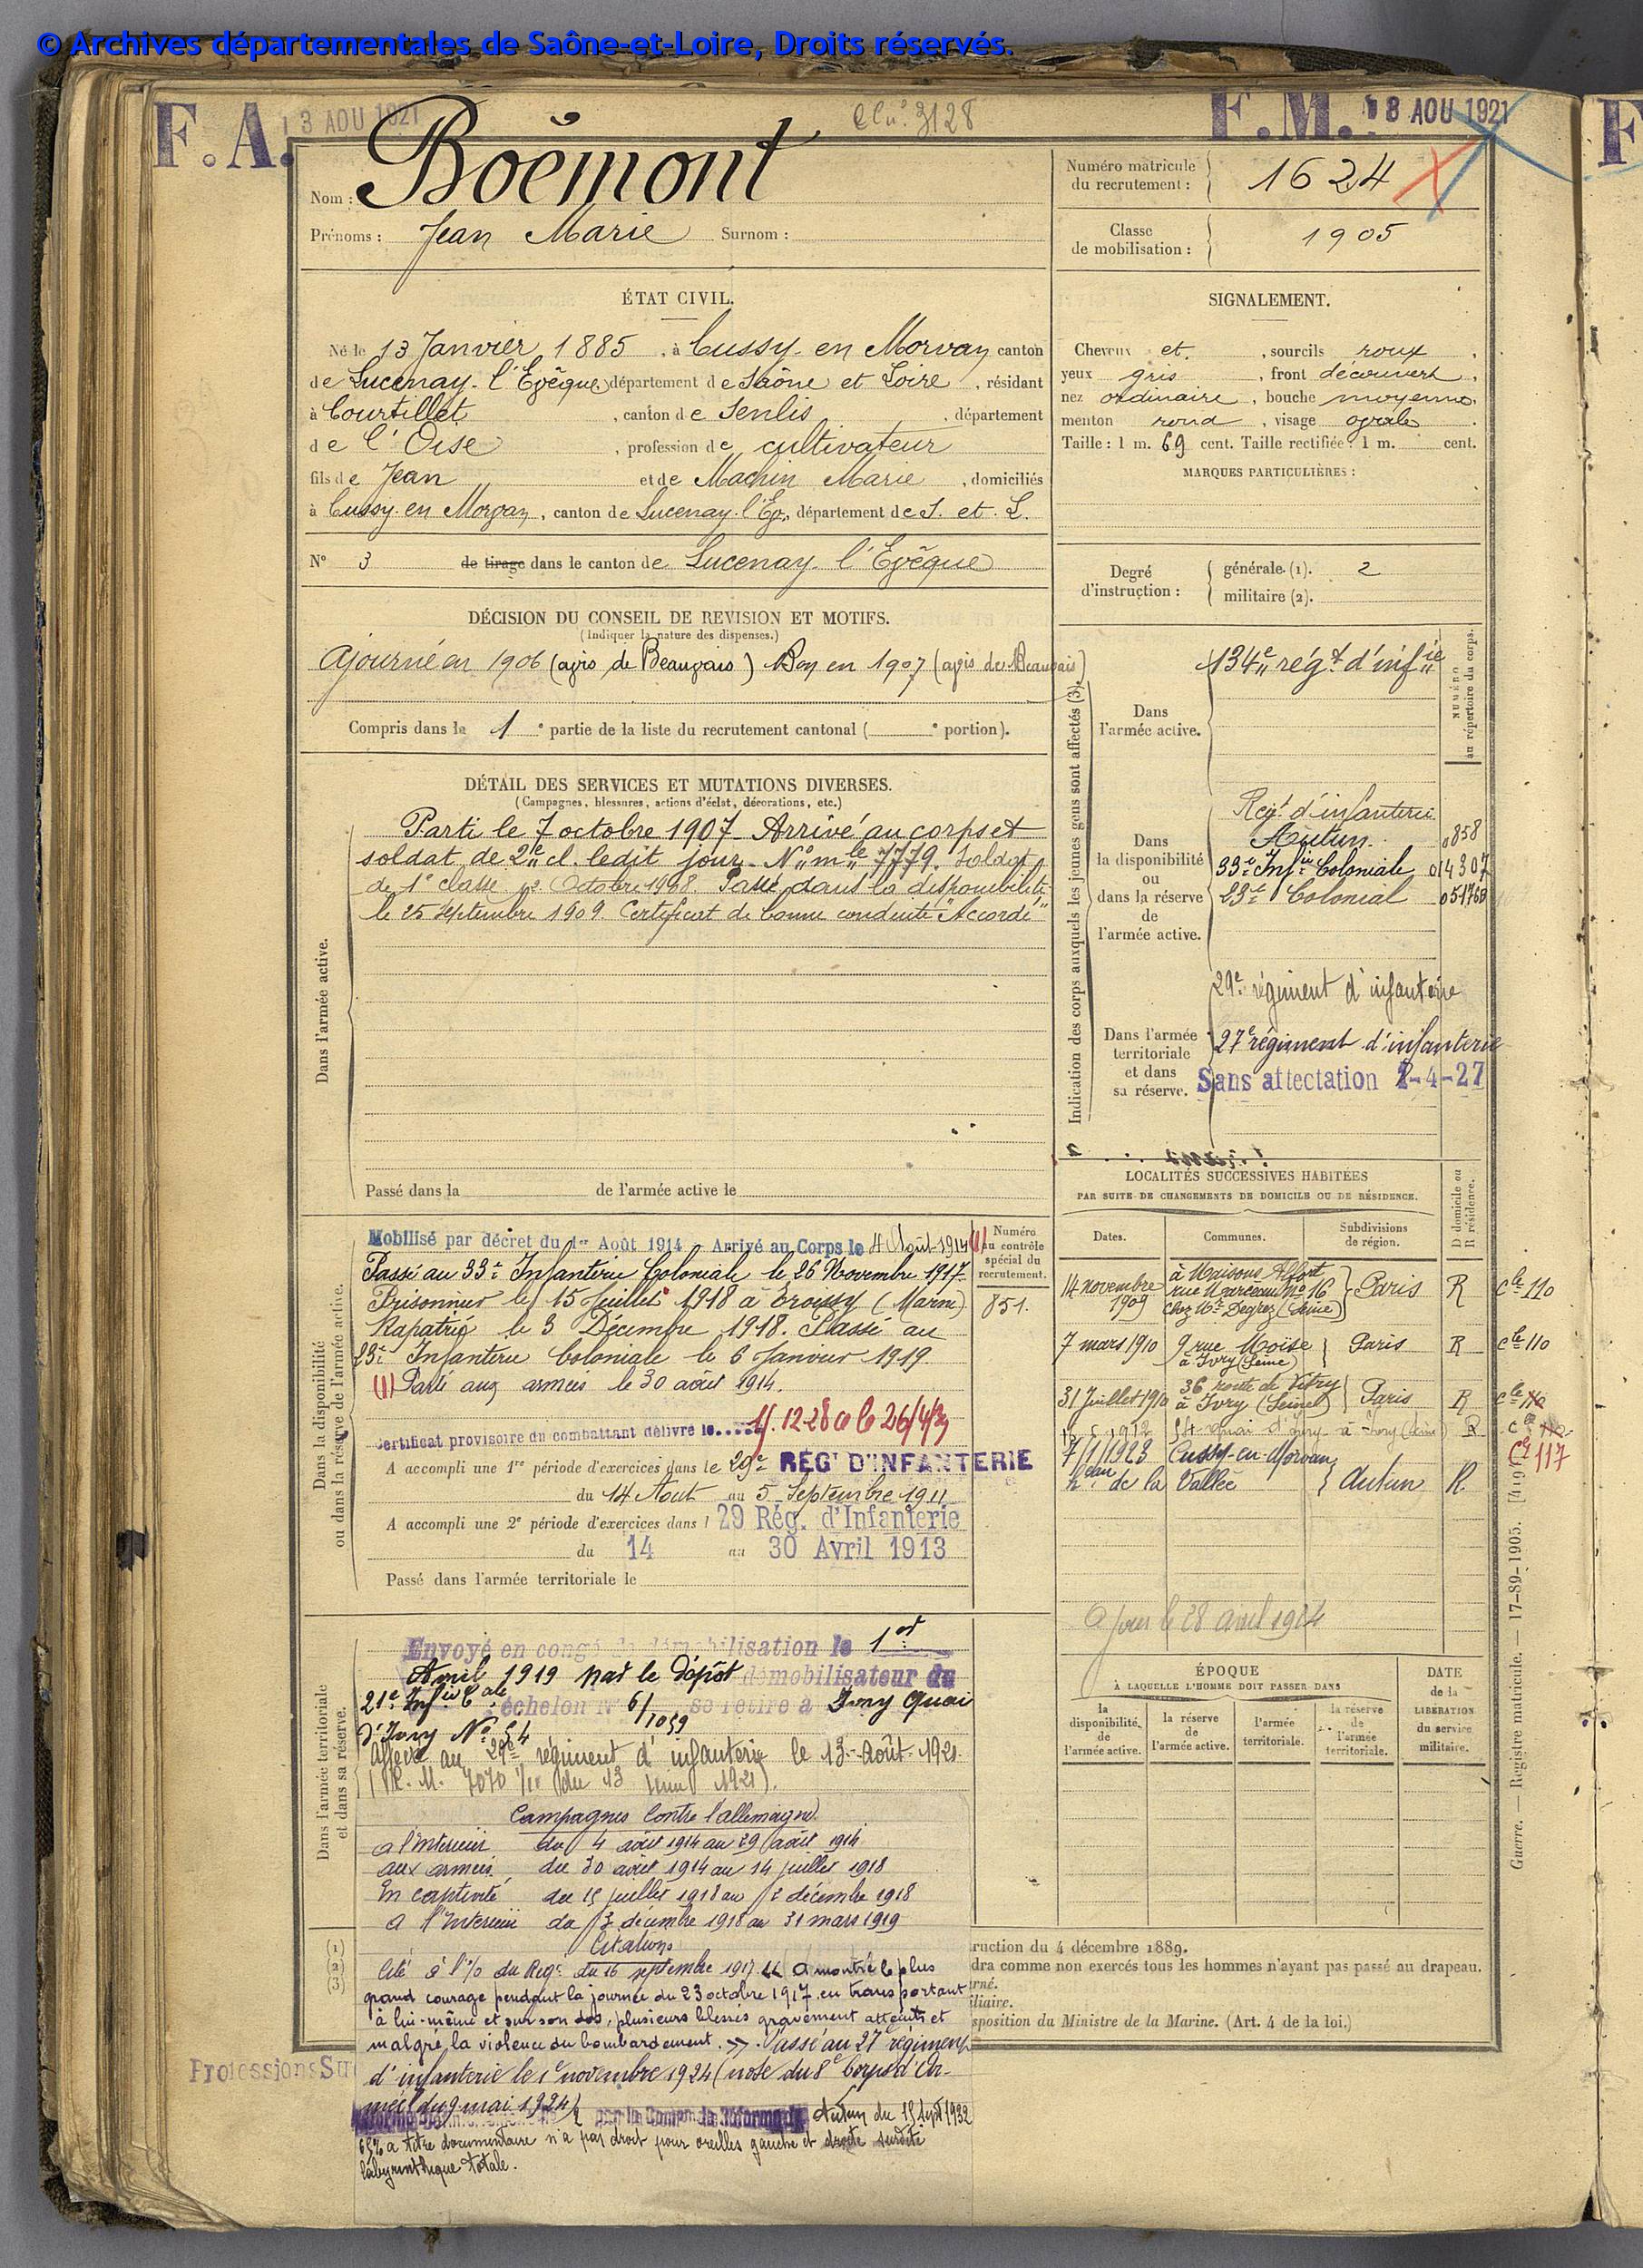 © Archives départementales de Saône-et-Loire, Droits réservés.
F.A. 13 AOU 1921
3128
F.M. 18 AOU 1921
F
Nom : Boëmont
Prénoms : Jean Marie Surnom :
Numéro matricule
du recrutement : 1624
Classe
de mobilisation : 1905
ÉTAT CIVIL.
Né le 13 Janvier 1885, à Cussy-en Morvan canton
de Lucenay-l'Evêque, département de Saône et Loire, résidant
à Courtillet, canton de Senlis, département
de l'Oise, profession de cultivateur
fils de Jean et de Machin Marie, domiciliés
à Cussy-en Morvan, canton de Lucenay-l'Ev., département de S. et L.
N° 3 de tirage dans le canton de Lucenay-l'Evêque
SIGNALEMENT.
Cheveux et, sourcils roux,
yeux gris, front découvert,
nez ordinaire, bouche moyenne,
menton rond, visage ovale.
Taille : 1 m. 69 cent. Taille rectifiée : 1 m. cent.
MARQUES PARTICULIÈRES :
Degré
d'instruction :
générale (1). 2
militaire (2).
DÉCISION DU CONSEIL DE REVISION ET MOTIFS.
(Indiquer la nature des dispenses.)
Ajourné en 1906 (avis de Beauvais) Bon en 1907 (avis de Beauvais)
Compris dans la 1e partie de la liste du recrutement cantonal ( e portion).
DÉTAIL DES SERVICES ET MUTATIONS DIVERSES.
(Campagnes, blessures, actions d'éclat, décorations, etc.)
Dans l'armée active.
Parti le 7 octobre 1907. Arrivé au corps et
soldat de 2e cl. ledit jour. N° mle 7779. Soldat
de 1e classe Octobre 1908. Passé dans la disponibilité
le 25 Septembre 1909. Certificat de bonne conduite "Accordé"
Passé dans la de l'armée active le
Indication des corps auxquels les jeunes gens sont affectés (3).
NUMÉRO
au répertoire du corps.
Dans
l'armée active.
134e régt d'infie
Dans
la disponibilité
ou
dans la réserve
de
l'armée active.
Regt d'infanterie
Autun 0858
33e Infie Coloniale 014307
23e Colonial 051760
Dans l'armée
territoriale
et dans
sa réserve.
29e régiment d'infanterie
27e régiment d'infanterie
Sans affectation 2-4-27
LOCALITÉS SUCCESSIVES HABITÉES
PAR SUITE DE CHANGEMENTS DE DOMICILE OU DE RÉSIDENCE.
Dates. Communes. Subdivisions
de région.
D domicile ou
R résidence.
14 novembre
1909
à Maisons Alfort
rue Marceau No 16
chez Mr Degrez (Seine)
Paris R cle 110
7 mars 1910 9 rue Moïse
à Ivry (Seine) Paris R cle 110
31 Juillet 1910 36 route de Vitry
à Ivry (Seine) Paris R cle
1912 54 quai d'Ivry à Ivry (Seine) R
7/1/1923 Cussy-en-Morvan
heau de la Vallée Autun R 117
A jour le 28 avril 1924
Dans la disponibilité
ou dans la réserve de l'armée active.
Numéro
au contrôle
spécial du
recrutement.
851.
Mobilisé par décret du 1er Août 1914 - Arrivé au Corps le 4 Août 1914 (1)
Passé au 33e Infanterie Coloniale le 26 Novembre 1917
Prisonnier le 15 Juillet 1918 à Troissy (Marne)
Rapatrié le 3 Décembre 1918. Passé au
23e Infanterie Coloniale le 6 Janvier 1919
(1) Parti aux armées le 30 août 1914.
Certificat provisoire du combattant délivré le
A accompli une 1re période d'exercices dans le 29e RÉGt D'INFANTERIE
du 14 Aout au 5 Septembre 1911
A accompli une 2e période d'exercices dans l 29 Rég. d'Infanterie
du 14 au 30 Avril 1913
Passé dans l'armée territoriale le
Dans l'armée territoriale
et dans sa réserve.
Envoyé en congé de démobilisation le 1er
Avril 1919 par le dépôt démobilisateur du
21e Infie Cale échelon N° 6/1059 se retire à Ivry Quai
d'Ivry No 54
Affecté au 29e régiment d'infanterie le 13 Août 1921
Campagnes Contre l'allemagne
a l'Interieur du 4 août 1914 au 29 août 1914
aux armées du 30 août 1914 au 14 juillet 1918
En captivité du 15 juillet 1918 au 2 décembre 1918
a l'Interieur du 3 décembre 1918 au 31 mars 1919
Citations
Cité à l'%o du Regt du 16 septembre 1917 « A montré le plus
grand courage pendant la journée du 23 octobre 1917 en transportant
à lui-même et sur son dos, plusieurs blessés gravement atteints et
malgré la violence du bombardement. ». Passé au 27e régiment
d'infanterie le 1e novembre 1924 (note du 8e Corps d'Ar-
mée du 9 mai 1924)
Autun du 15 Sept 1932
65% a titre documentaire n'a pas droit pour oreilles gauche et droite surdité
labyrinthique totale.
ÉPOQUE
À LAQUELLE L'HOMME DOIT PASSER DANS
la
disponibilité
de
l'armée active.
la réserve
de
l'armée active.
l'armée
territoriale.
la réserve
de
l'armée
territoriale.
DATE
de la
LIBÉRATION
du service
militaire.
(1)
(2)
(3)
ruction du 4 décembre 1889.
dra comme non exercés tous les hommes n'ayant pas passé au drapeau.
rné.
iliaire.
sposition du Ministre de la Marine. (Art. 4 de la loi.)
Professions Su
Guerre. — Registre matricule. — 17-89-1905.